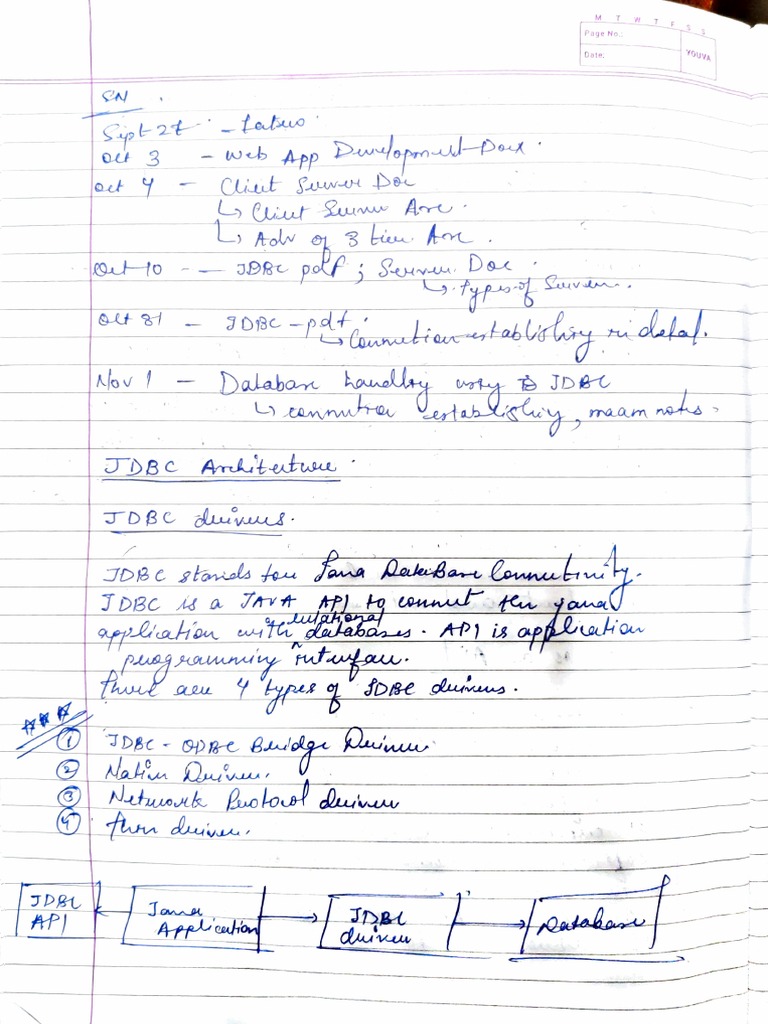 M T W T F S S
Page No.:
Date:
YOUVA
SN
Sept 27 -
Oct 3 - Web App Development Docx.
Oct 4 - Client Server Doc
↳ Client Server Arc.
↳ Adv of 3 tier Arc.
Oct 10 - JDBC pdf ; Server Doc.
↳ types of Server.
Oct 31 - JDBC - pdf.
↳ Connection establishing in detail.
Nov 1 - Database handling using JDBC
↳ connection establishing, maam notes.
JDBC Architecture.
JDBC drivers.
JDBC stands for Java DataBase Connectivity.
JDBC is a JAVA API to connect the java
application with relational databases. API is application
programming interface.
There are 4 types of JDBC drivers.
① JDBC - ODBC Bridge Driver.
② Native Driver.
③ Network Protocol driver
④ thin driver.
JDBC API
Java Application
JDBC driver
Database